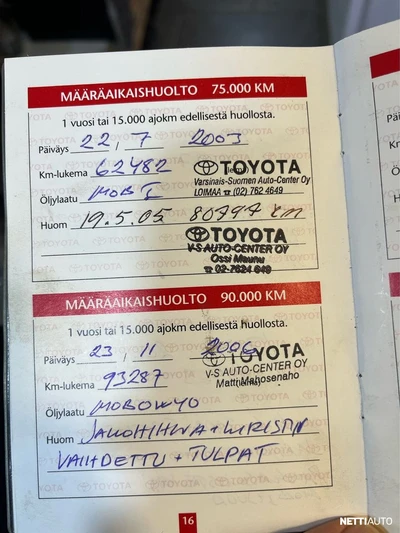 MÄÄRÄAIKAISHUOLTO 75.000 KM
1 vuosi tai 15.000 ajokm edellisestä huollosta.
Päiväys 22, 7 2003
Km-lukema 62482
TOYOTA
Varsinais-Suomen Auto-Center Oy
LOIMAA ☎ (02) 762 4649
Öljylaatu MOB I
Huom 19.5.05 80797 km
TOYOTA
V-S AUTO-CENTER OY
Ossi Maunu
☎ 02-7624 649
MÄÄRÄAIKAISHUOLTO 90.000 KM
1 vuosi tai 15.000 ajokm edellisestä huollosta.
Päiväys 23, 11 2006
TOYOTA
V-S AUTO-CENTER OY
Matti Mahosenaho
Km-lukema 93287
Öljylaatu
Huom JAKOHIHNA + KIRISTIN
VAIHDETTU + TULPAT
16
NETTIAUTO